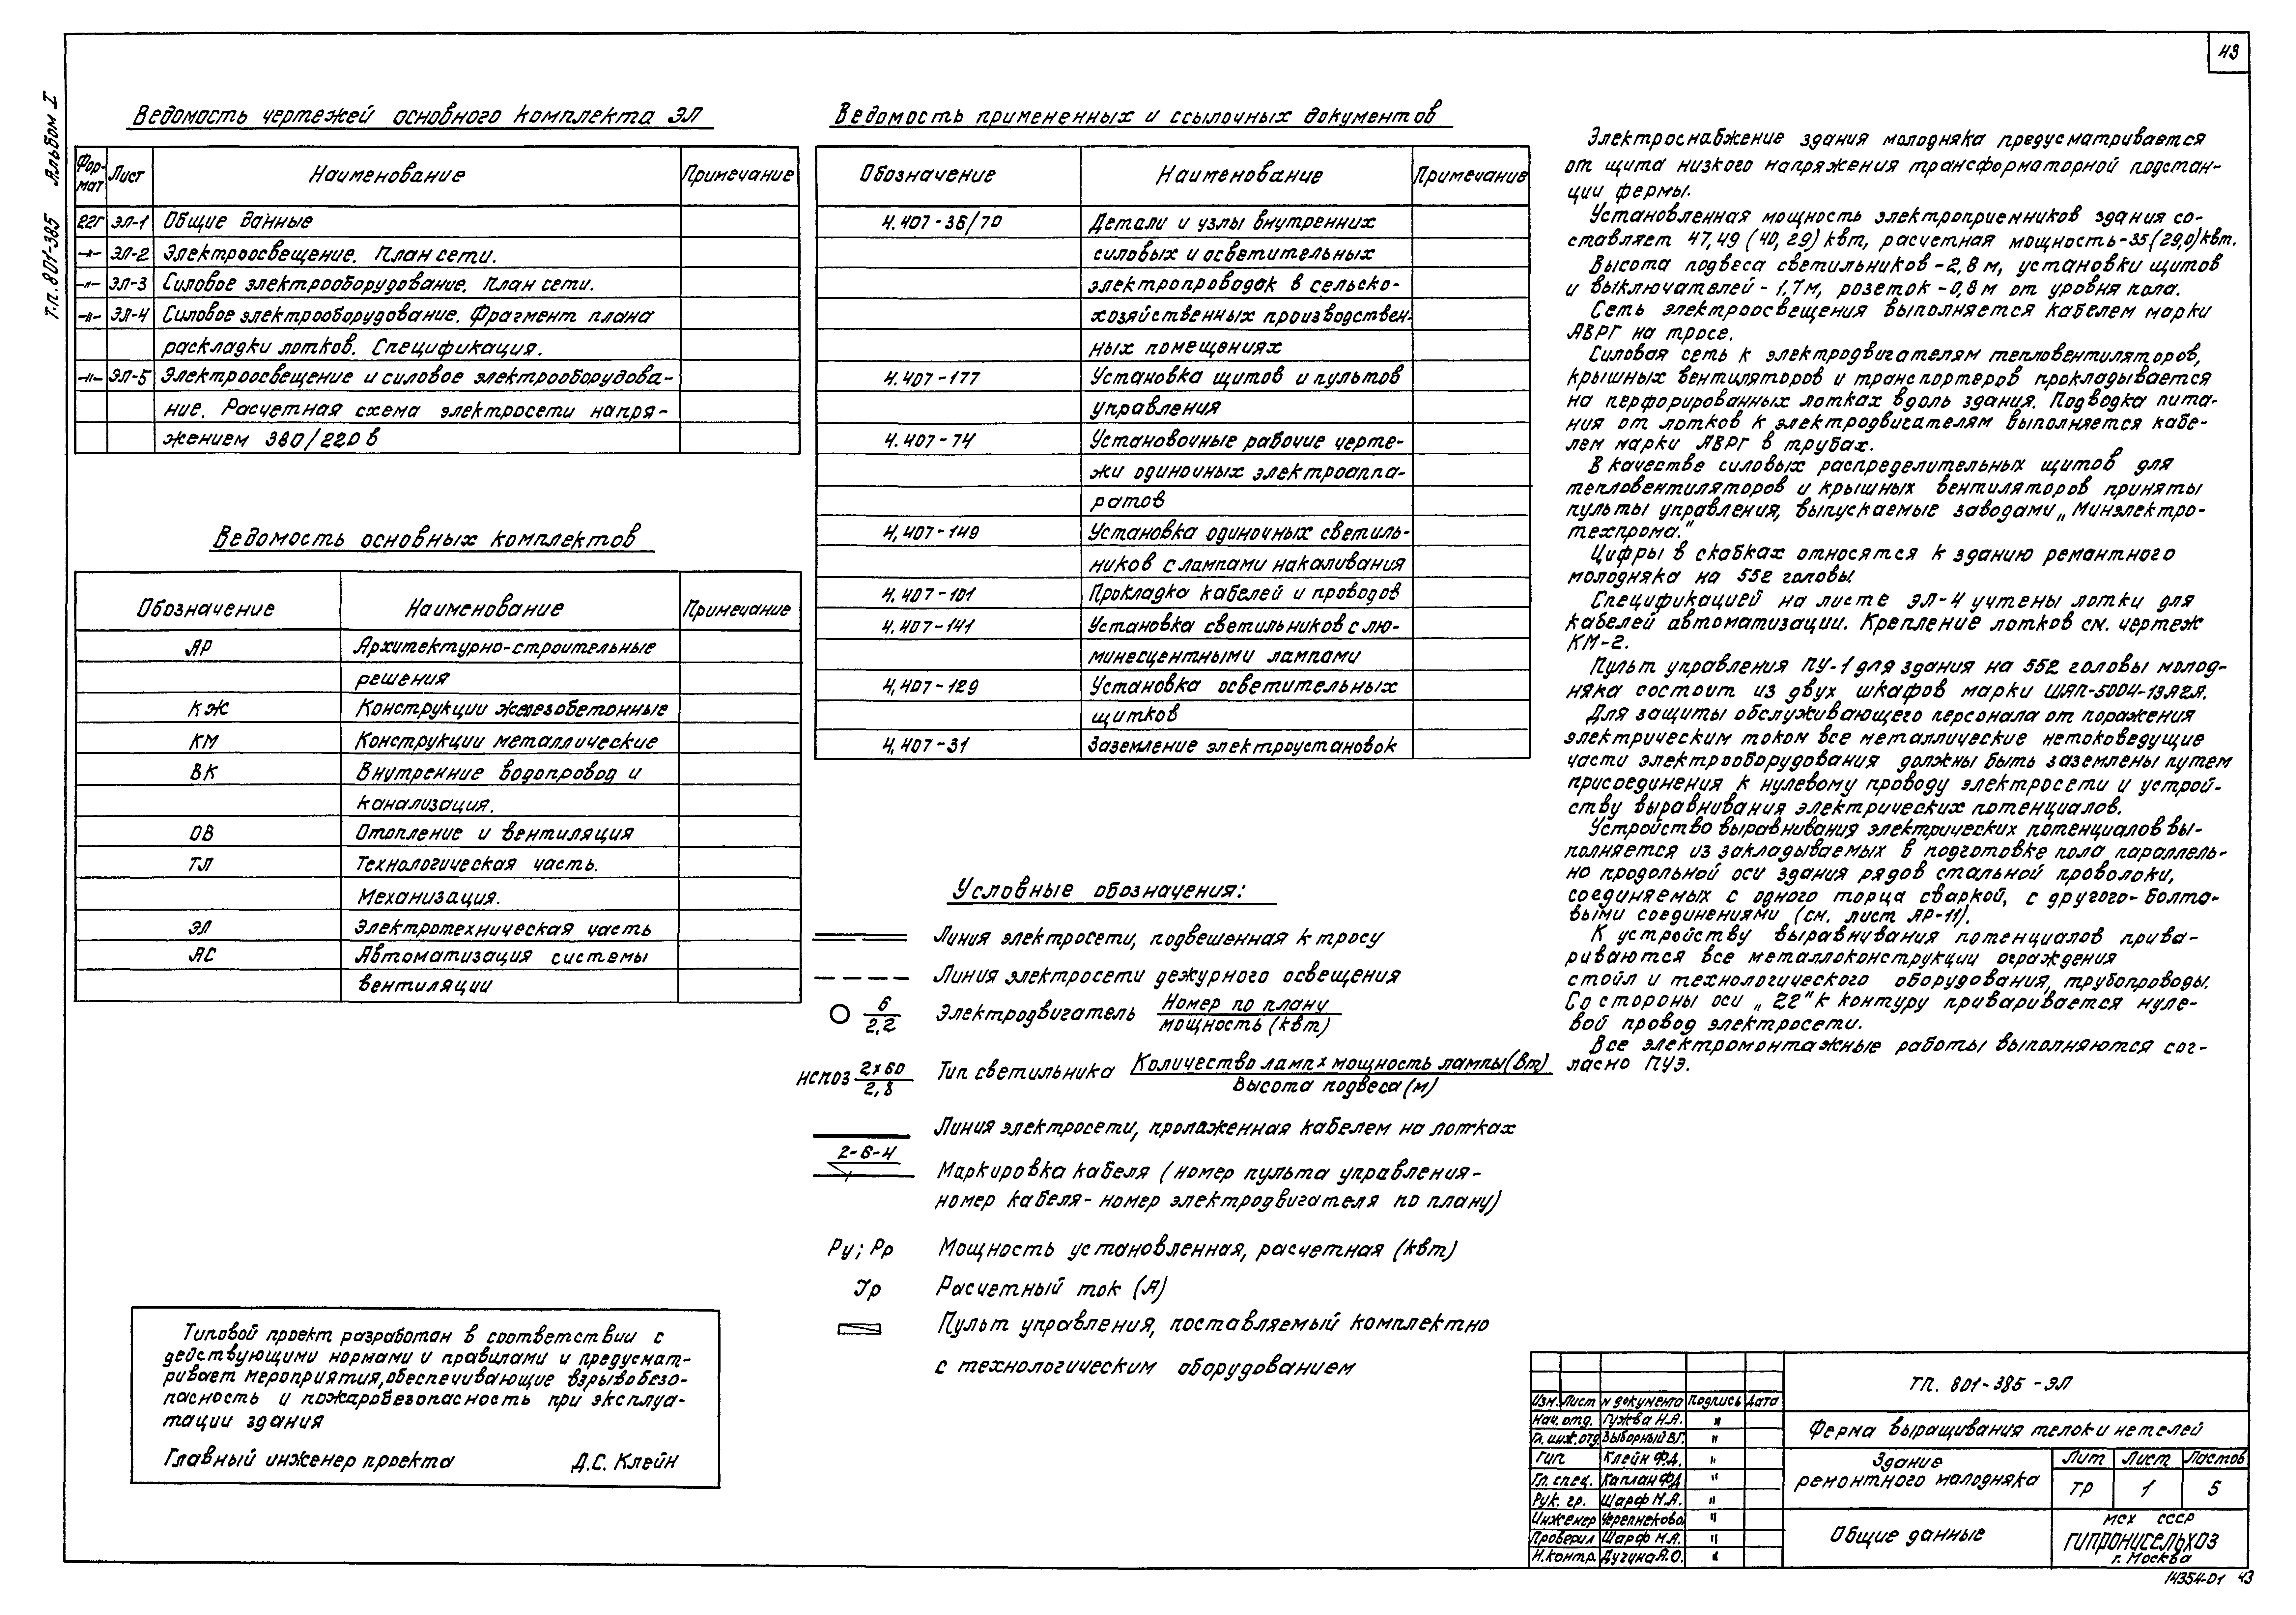 43
Т.п. 801-385 Альбом I
Ведомость чертежей основного комплекта ЭЛ
Формат Лист Наименование Примечание
22г ЭЛ-1 Общие данные
-"- ЭЛ-2 Электроосвещение. План сети.
-"- ЭЛ-3 Силовое электрооборудование. План сети.
-"- ЭЛ-4 Силовое электрооборудование. Фрагмент плана
раскладки лотков. Спецификация.
-"- ЭЛ-5 Электроосвещение и силовое электрооборудова-
ние. Расчетная схема электросети напря-
жением 380/220 в
Ведомость основных комплектов
Обозначение Наименование Примечание
АР Архитектурно-строительные
решения
КЖ Конструкции железобетонные
КМ Конструкции металлические
ВК Внутренние водопровод и
канализация.
ОВ Отопление и вентиляция
ТЛ Технологическая часть.
Механизация.
ЭЛ Электротехническая часть
АС Автоматизация системы
вентиляции
Типовой проект разработан в соответствии с
действующими нормами и правилами и предусмат-
ривает мероприятия, обеспечивающие взрывобезо-
пасность и пожаробезопасность при эксплуа-
тации здания
Главный инженер проекта Д.С. Клейн
Ведомость примененных и ссылочных документов
Обозначение Наименование Примечание
4.407-36/70 Детали и узлы внутренних
силовых и осветительных
электропроводок в сельско-
хозяйственных производствен-
ных помещениях
4.407-177 Установка щитов и пультов
управления
4.407-74 Установочные рабочие черте-
жи одиночных электроаппа-
ратов
4.407-149 Установка одиночных светиль-
ников с лампами накаливания
4.407-101 Прокладка кабелей и проводов
4.407-141 Установка светильников с лю-
минесцентными лампами
4.407-129 Установка осветительных
щитков
4.407-31 Заземление электроустановок
Условные обозначения:
Линия электросети, подвешенная к тросу
Линия электросети дежурного освещения
6
2,2 Электродвигатель Номер по плану
мощность (квт)
НСП03 2х60
2,8 Тип светильника Количество ламп х мощность лампы (вт)
Высота подвеса (м)
Линия электросети, проложенная кабелем на лотках
2-6-4
Маркировка кабеля (номер пульта управления-
номер кабеля- номер электродвигателя по плану)
Ру; Рр Мощность установленная, расчетная (квт)
Jр Расчетный ток (А)
Пульт управления, поставляемый комплектно
с технологическим оборудованием
Электроснабжение здания молодняка предусматривается
от щита низкого напряжения трансформаторной подстан-
ции фермы.
Установленная мощность электроприемников здания со-
ставляет 47,49 (40,29) квт, расчетная мощность-35 (29,0) квт.
Высота подвеса светильников-2,8 м, установки щитов
и выключателей-1,7м, розеток-0,8 м от уровня пола.
Сеть электроосвещения выполняется кабелем марки
АВРГ на тросе.
Силовая сеть к электродвигателям тепловентиляторов,
крышных вентиляторов и транспортеров прокладывается
на перфорированных лотках вдоль здания. Подводка пита-
ния от лотков к электродвигателям выполняется кабе-
лем марки АВРГ в трубах.
В качестве силовых распределительных щитов для
тепловентиляторов и крышных вентиляторов приняты
пульты управления, выпускаемые заводами „Минэлектро-
техпрома."
Цифры в скобках относятся к зданию ремонтного
молодняка на 552 головы.
Спецификацией на листе ЭЛ-4 учтены лотки для
кабелей автоматизации. Крепление лотков см. чертеж
КМ-2.
Пульт управления ПУ-1 для здания на 552 головы молод-
няка состоит из двух шкафов марки ШАП-5004-13А2Я.
Для защиты обслуживающего персонала от поражения
электрическим током все металлические нетоковедущие
части электрооборудования должны быть заземлены путем
присоединения к нулевому проводу электросети и устрой-
ству выравнивания электрических потенциалов.
Устройство выравнивания электрических потенциалов вы-
полняется из закладываемых в подготовке пола параллель-
но продольной оси здания рядов стальной проволоки,
соединяемых с одного торца сваркой, с другого-болто-
выми соединениями (см. лист АР-11).
К устройству выравнивания потенциалов прива-
риваются все металлоконструкции ограждения
стойл и технологического оборудования, трубопроводы.
Со стороны оси „22" к контуру приваривается нуле-
вой провод электросети.
Все электромонтажные работы выполняются сог-
ласно ПУЭ.
Изм. Лист N документа Подпись Дата
Нач. отд. Гужва Н.Я. "
Гл. инж. отд. Выборный В.Г. "
Гип Клейн Ф.Д. "
Гл. спец. Каплан Ф.Д "
Рук. гр. Шарф М.А. "
Инженер Черепнеково "
Проверил Шарф М.А. "
Н.контр. Дугуна А.О. "
ТП. 801-385-ЭЛ
Ферма выращивания телок и нетелей
Здание
ремонтного молодняка
Лит Лист Листов
ТР 1 5
Общие данные
МСХ СССР
ГИПРОНИСЕЛЬХОЗ
г. Москва
14354-01 43